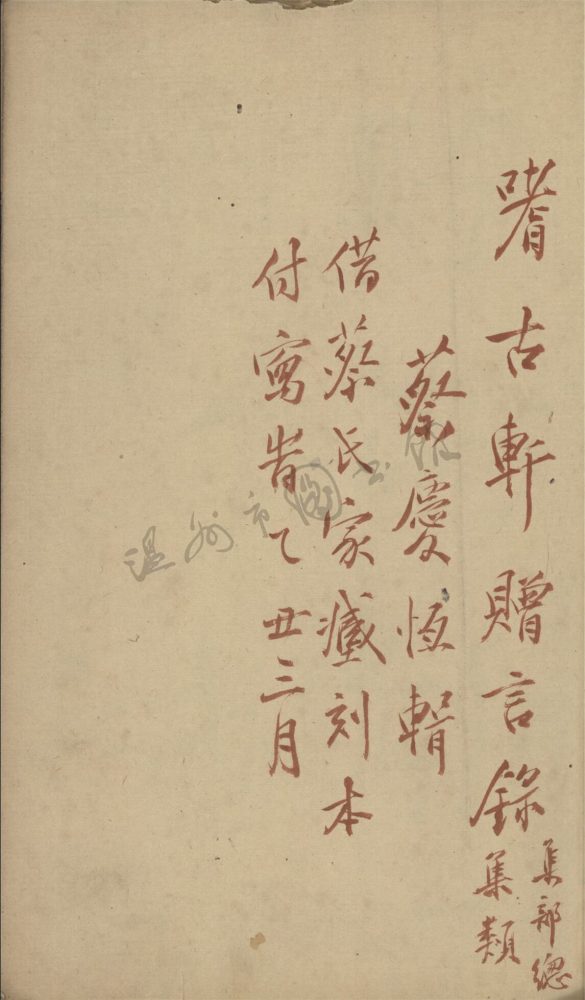 嗜古軒贈言錄
集部總
集類
蔡慶恆輯
借蔡氏家藏刻本
付寫旹乙丑三月
温州市图书馆